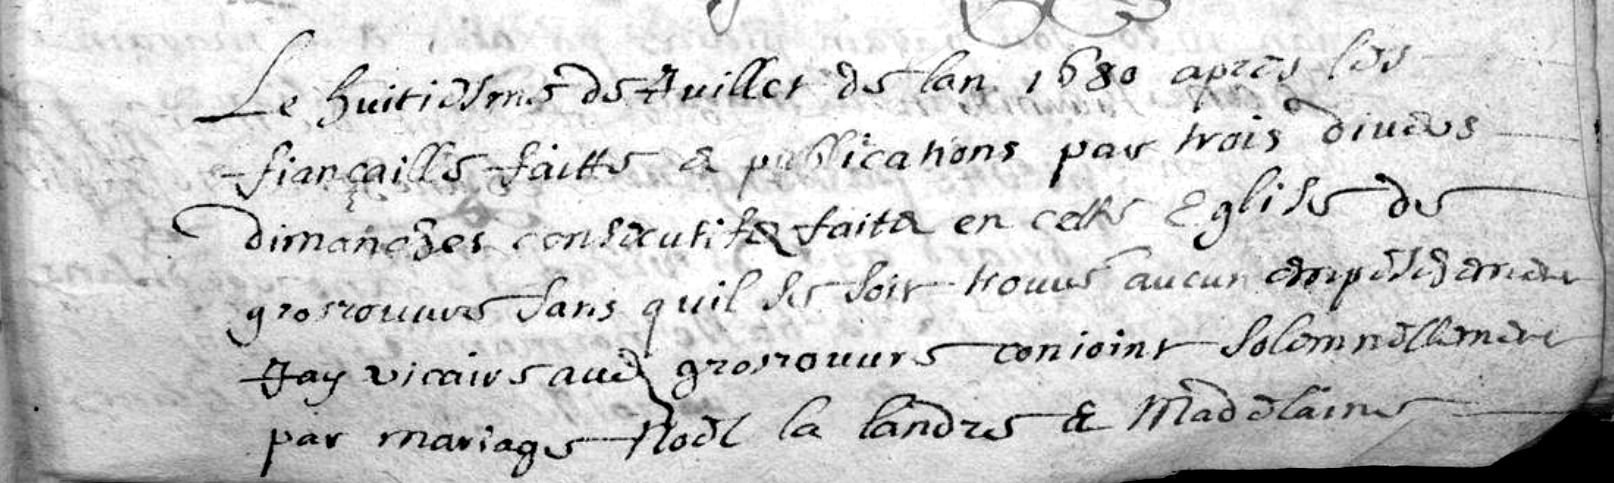 Le huitiesme de Juillet de lan 1680 apres les
fiançailles faittes & publications par trois divers
dimanches consecutifs faite en cette Eglise de
grosrouvre sans quil se soit trouvé aucun empeschement
Jay vicaire aud grosrouvre conioint solemnellement
par mariage Noel la landre & Madelaine